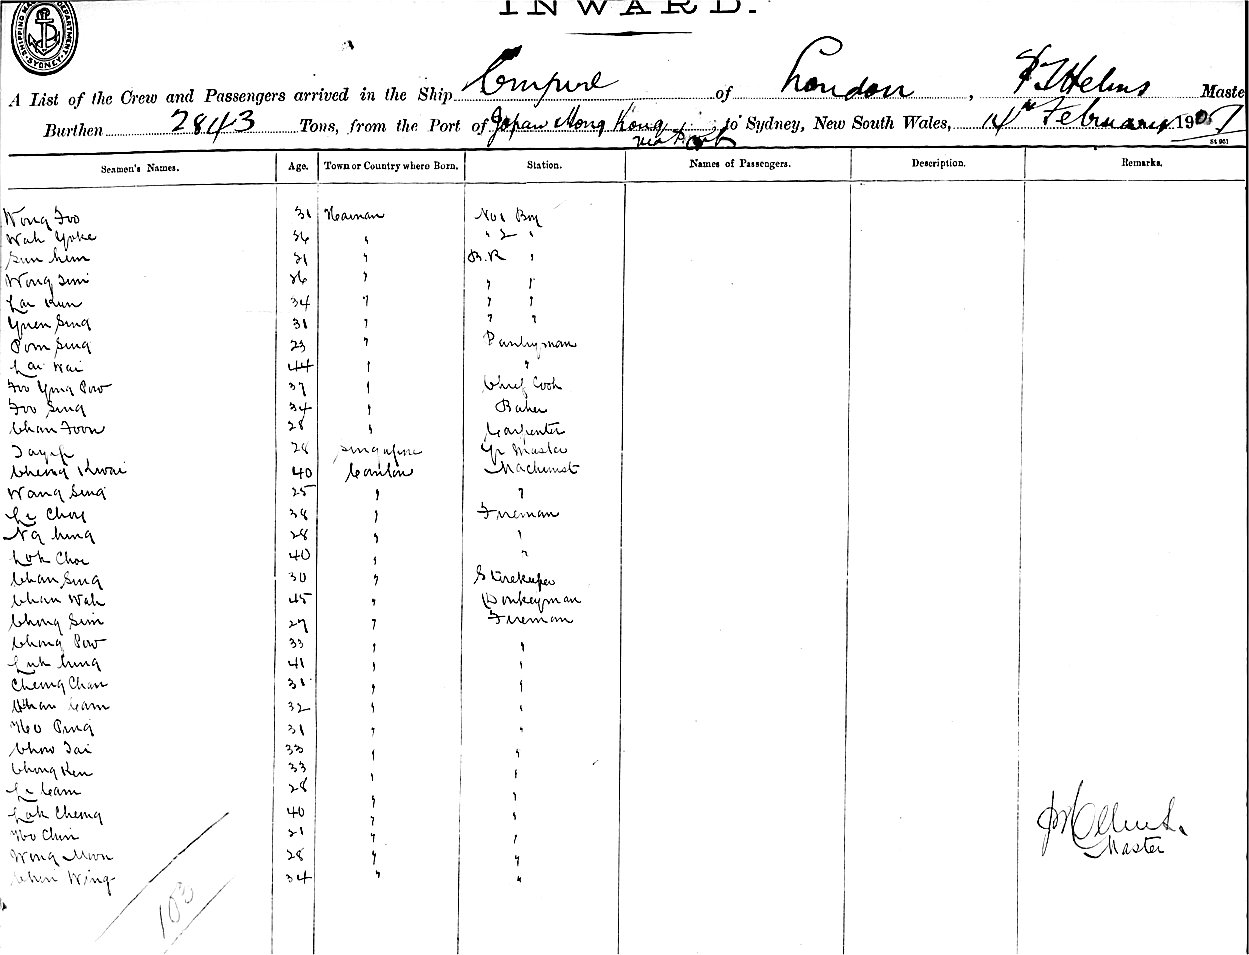 INWARD.
SHIPPING MASTER'S DEPARTMENT. SYDNEY.
A List of the Crew and Passengers arrived in the Ship Empire of London, P T Helms Maste
Burthen 2843 Tons, from the Port of Japan Hong Kong via Ports to Sydney, New South Wales, 14th February 1907
Seamen's Names. Age. Town or Country where Born. Station. Names of Passengers. Description. Remarks.
Wong Foo 31 Hainan No 1 Boy
Wah Yoke 36 " " 2 "
Sun hem 21 " B.R "
Wong Simi 26 " " "
Lai Kun 34 " " "
Yuen Sing 31 " " "
Pom Sing 23 " Pantryman
Lai Wai 44 " "
Foo Yong Pow 37 " Chief Cook
Foo Sing 34 " Baker
Chan Foon 28 " Carpenter
Tayip 28 Singapore Qr Master
Cheng Kwai 40 Canton Machinist
Wong Sing 25 " "
Le Choy 38 " Fireman
Ng hing 28 " "
Lok Choi 40 " "
Chan Sing 30 " Storekeeper
Chan Wah 45 " Donkeyman
Chong Sim 27 " Fireman
Chong Pow 33 " "
Luk hing 41 " "
Cheng Chan 31 " "
Chan Cam 32 " "
Ho Ping 31 " "
Chow Tai 33 " "
Chong Ken 33 " "
Le Cam 28 " "
Lok Cheng 40 " "
Ho Chin 21 " "
Wong Moon 28 " "
Wing 34 " "
Master
103